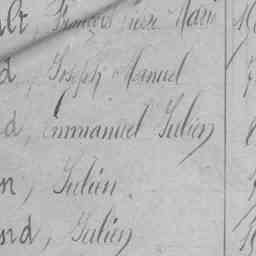 lt, François Pierre Marie
d, Joseph Manuel
d, Emmanuel Julien
n, Julien.
nd, Julien